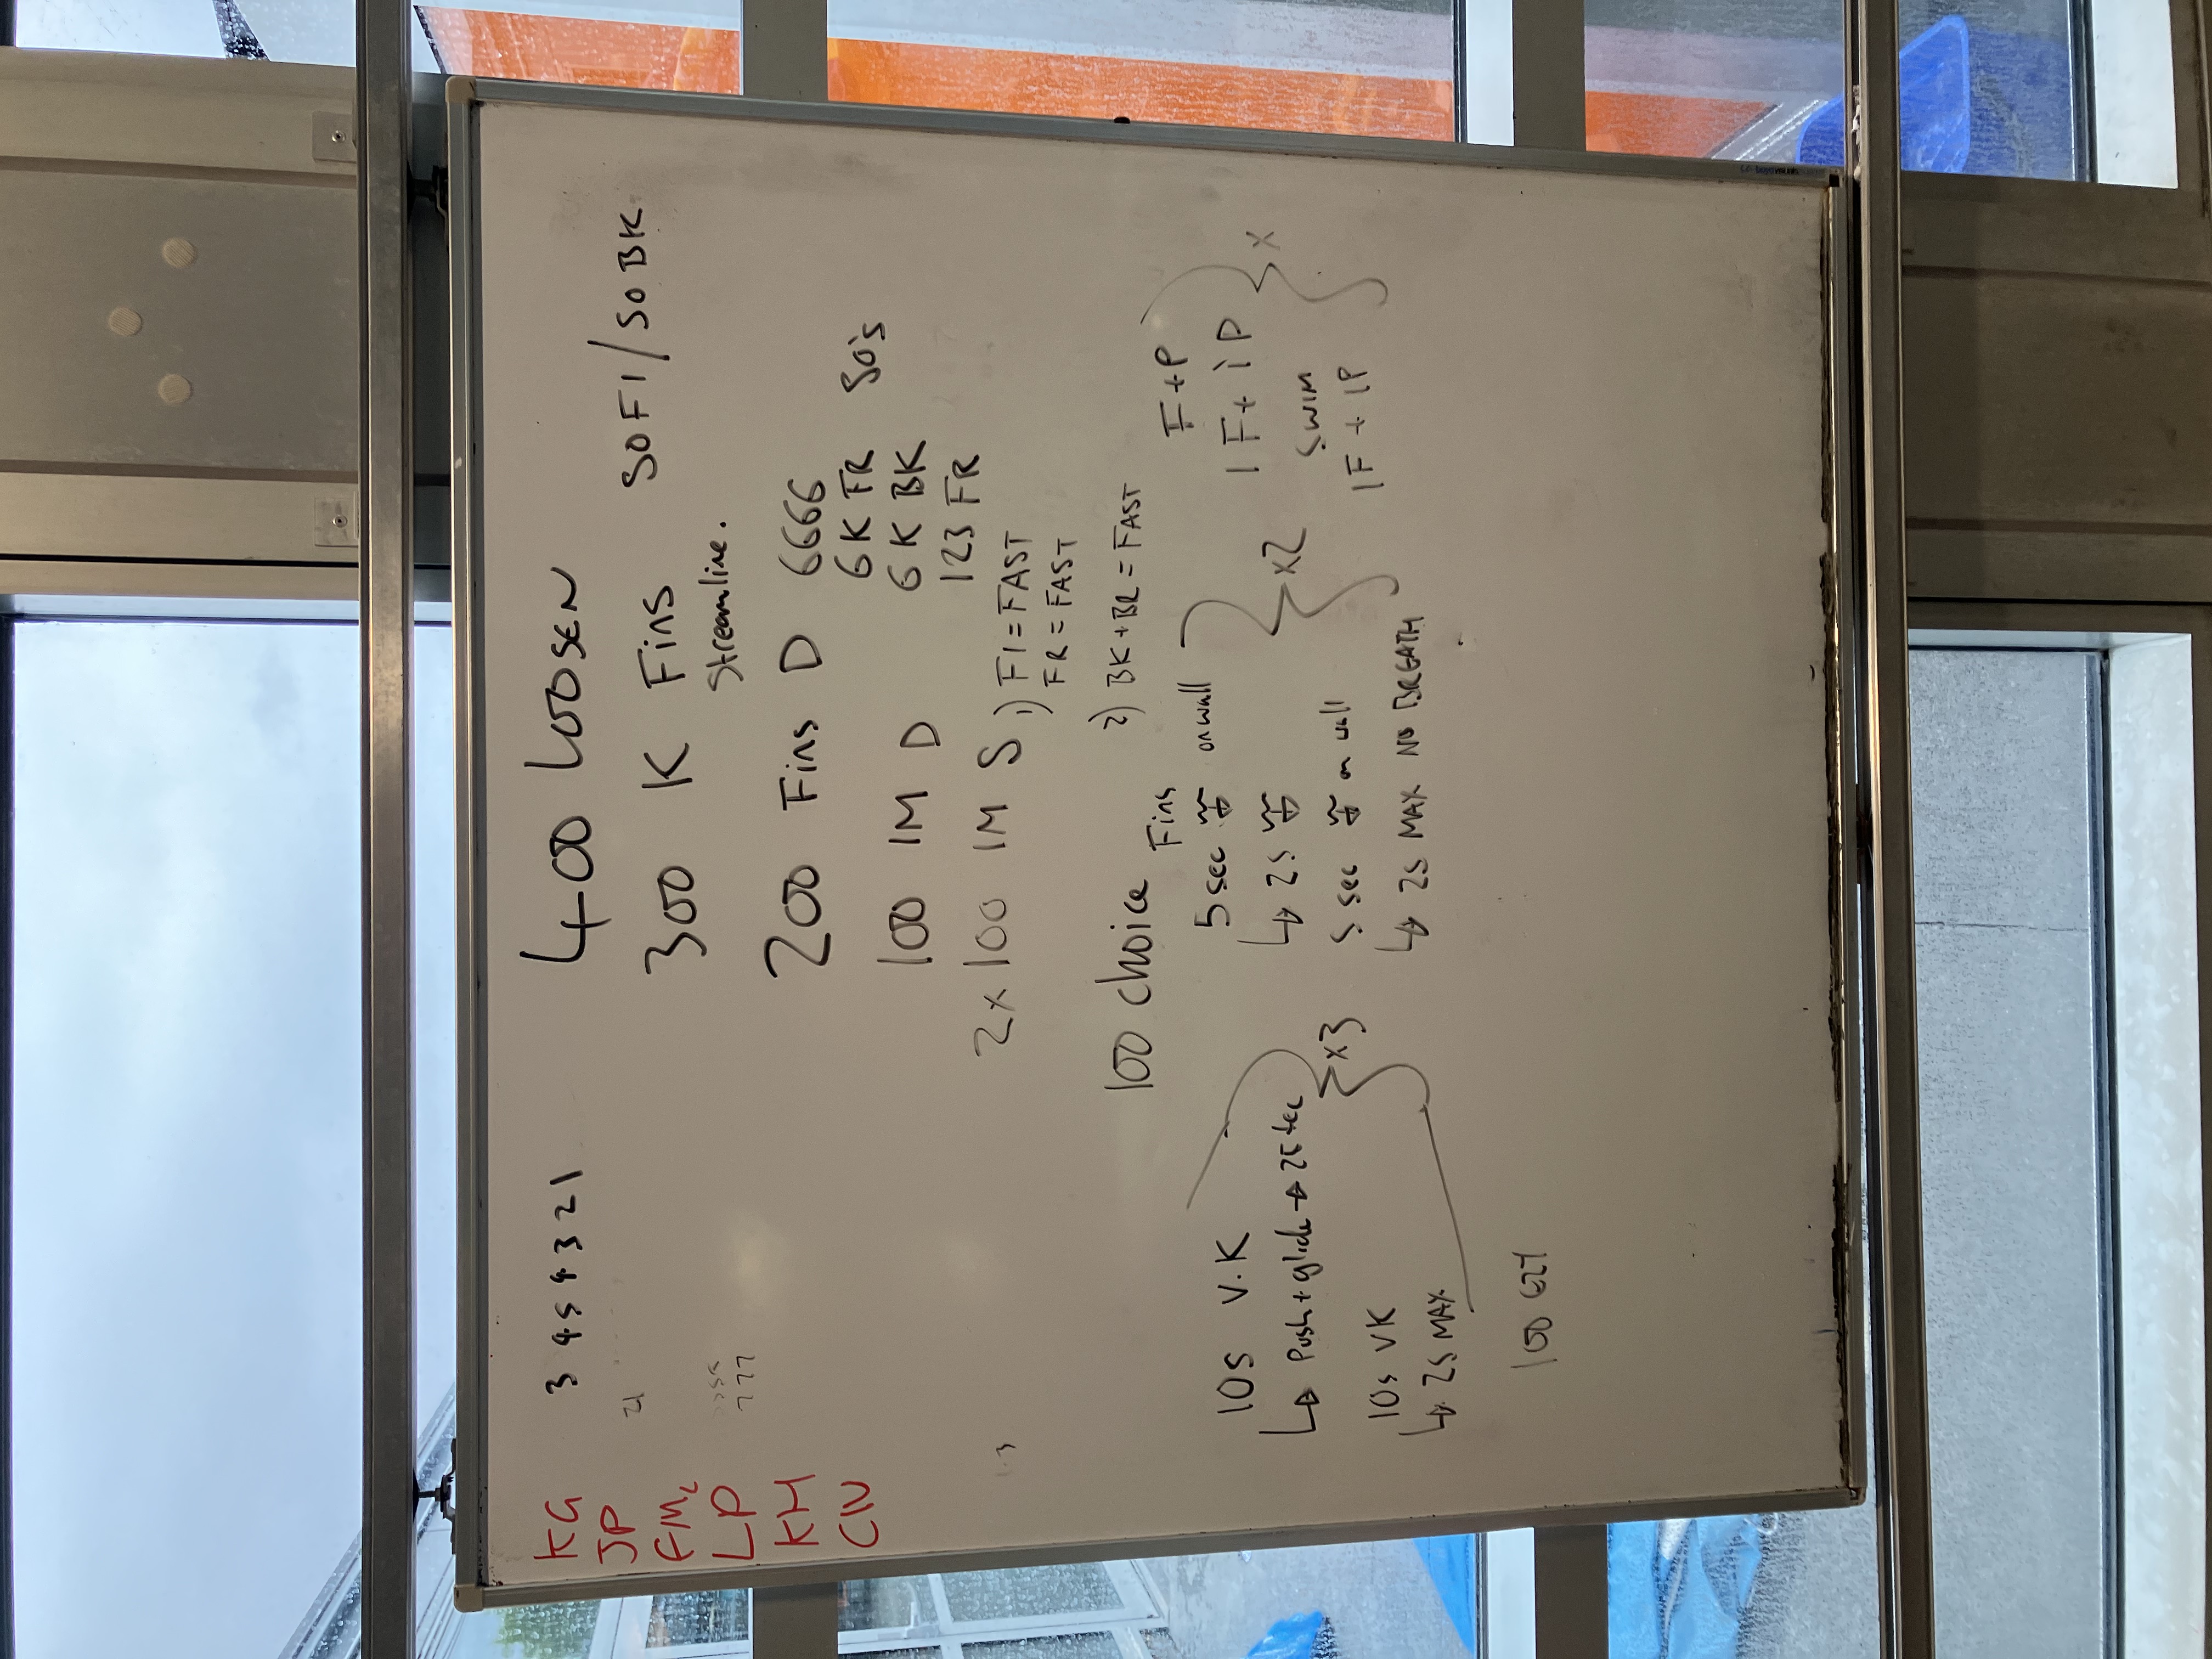 KG
JP
FMc
LP
KH
CN
3 4 5 4 3 2 1
21
777
400 LOOSEN
300 K Fins 50 F1/50 BK
Streamline.
200 Fins D 6666
6 K FR 50's
100 IM D 6 K BK
123 FR
2x100 IM S 1) F1 = FAST
FR = FAST
2) BK + BR = FAST
100 choice
10s V.K
↳ Push + glide → 25 tec
10s VK
↳ 25 MAX
x3
100 EZY
Fins
5 sec on wall
↳ 25
5 sec on wall
↳ 25 MAX NO BREATH
x2
F + P
1F + 1P
SWIM
1F + 1P
x